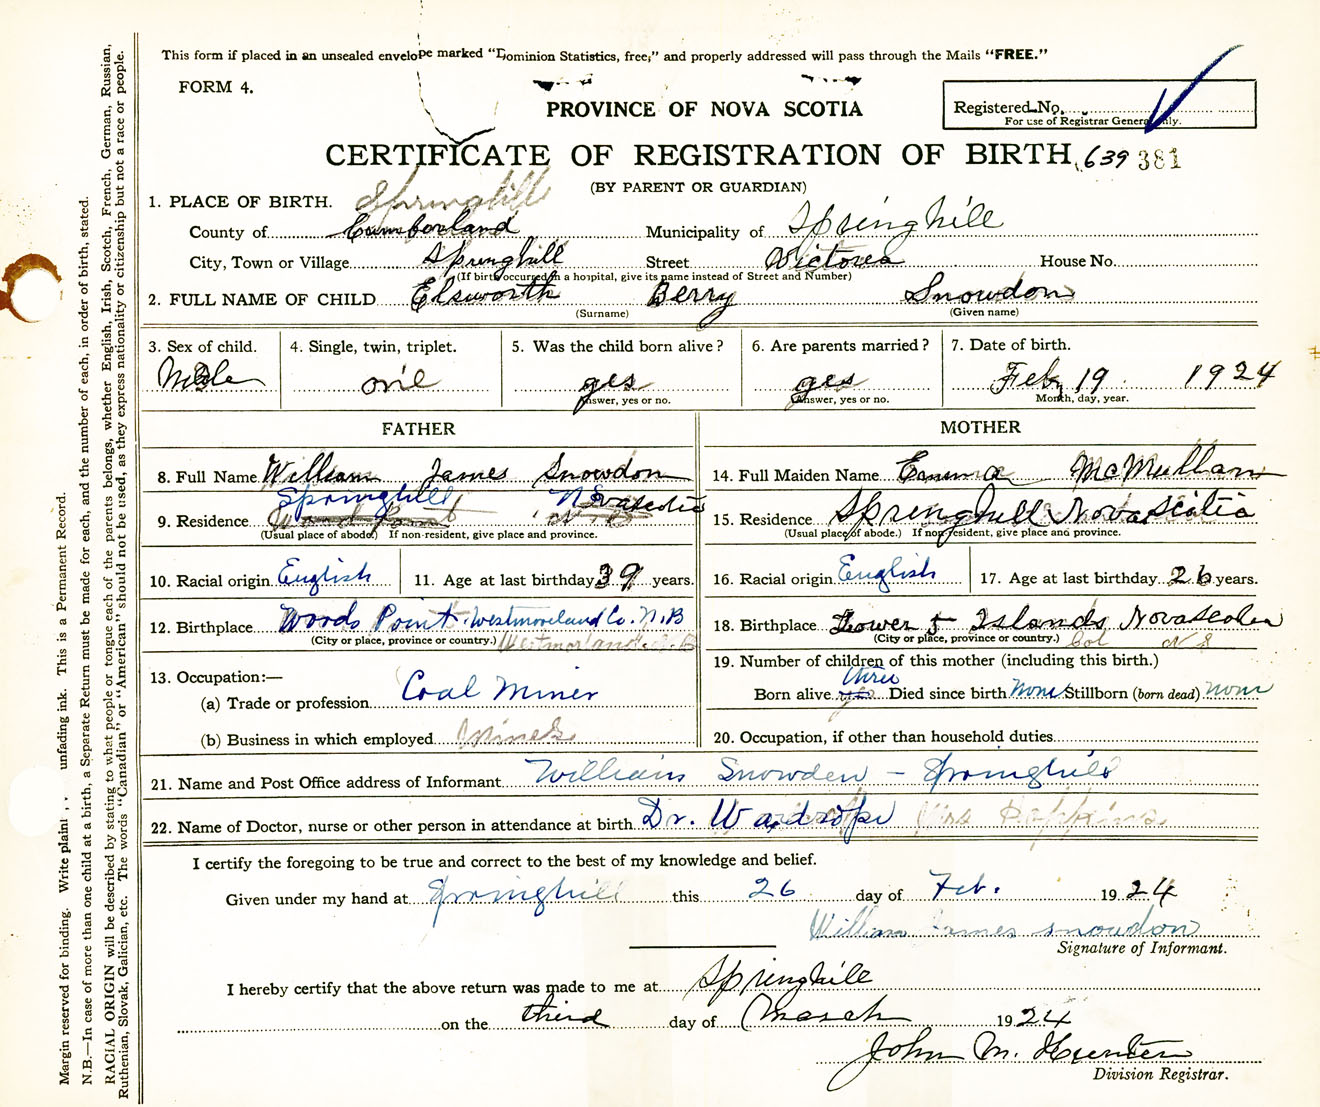 This form if placed in an unsealed envelope marked "Dominion Statistics, free," and properly addressed will pass through the Mails "FREE."
FORM 4.
PROVINCE OF NOVA SCOTIA
Registered No.
For use of Registrar General only.
CERTIFICATE OF REGISTRATION OF BIRTH 639 381
(BY PARENT OR GUARDIAN)
1. PLACE OF BIRTH. Springhill
County of Cumberland Municipality of Springhill
City, Town or Village Springhill Street Victoria House No.
(If birth occurred in a hospital, give its name instead of Street and Number)
2. FULL NAME OF CHILD Elsworth Berry Snowdon
(Surname) (Given name)
3. Sex of child. 4. Single, twin, triplet. 5. Was the child born alive? 6. Are parents married? 7. Date of birth.
Male one yes yes Feb 19 1924
Answer, yes or no. Answer, yes or no. Month, day, year.
FATHER MOTHER
8. Full Name William James Snowdon
Springhill Novascotia
9. Residence
(Usual place of abode.) If non-resident, give place and province.
10. Racial origin English 11. Age at last birthday 39 years.
12. Birthplace Woods Point Westmoreland Co. N.B
(City or place, province or country.) Westmorland N.B
13. Occupation:—
(a) Trade or profession Coal Miner
(b) Business in which employed Mines
14. Full Maiden Name Emma McMullan
15. Residence Springhill Nova Scotia
(Usual place of abode.) If non-resident, give place and province.
16. Racial origin English 17. Age at last birthday 26 years.
18. Birthplace Lower 5 Islands Novascotia
(City or place, province or country.) Col N S
19. Number of children of this mother (including this birth.)
three
Born alive yes Died since birth None Stillborn (born dead) none
20. Occupation, if other than household duties
21. Name and Post Office address of Informant William Snowden - Springhill
22. Name of Doctor, nurse or other person in attendance at birth Dr. Wadrope
I certify the foregoing to be true and correct to the best of my knowledge and belief.
Given under my hand at Springhill this 26 day of Feb. 1924
William James Snowdon
Signature of Informant.
I hereby certify that the above return was made to me at Springhill
on the third day of March 1924
John M. Hunter
Division Registrar.
Margin reserved for binding. Write plainl unfading ink. This is a Permanent Record.
N.B.—In case of more than one child at a birth, a Separate Return must be made for each, and the number of each, in order of birth, stated.
RACIAL ORIGIN will be described by stating to what people or tongue each of the parents belongs, whether English, Irish, Scotch, French, German, Russian,
Ruthenian, Slovak, Galician, etc. The words "Canadian" or "American" should not be used, as they express nationality or citizenship but not a race or people.